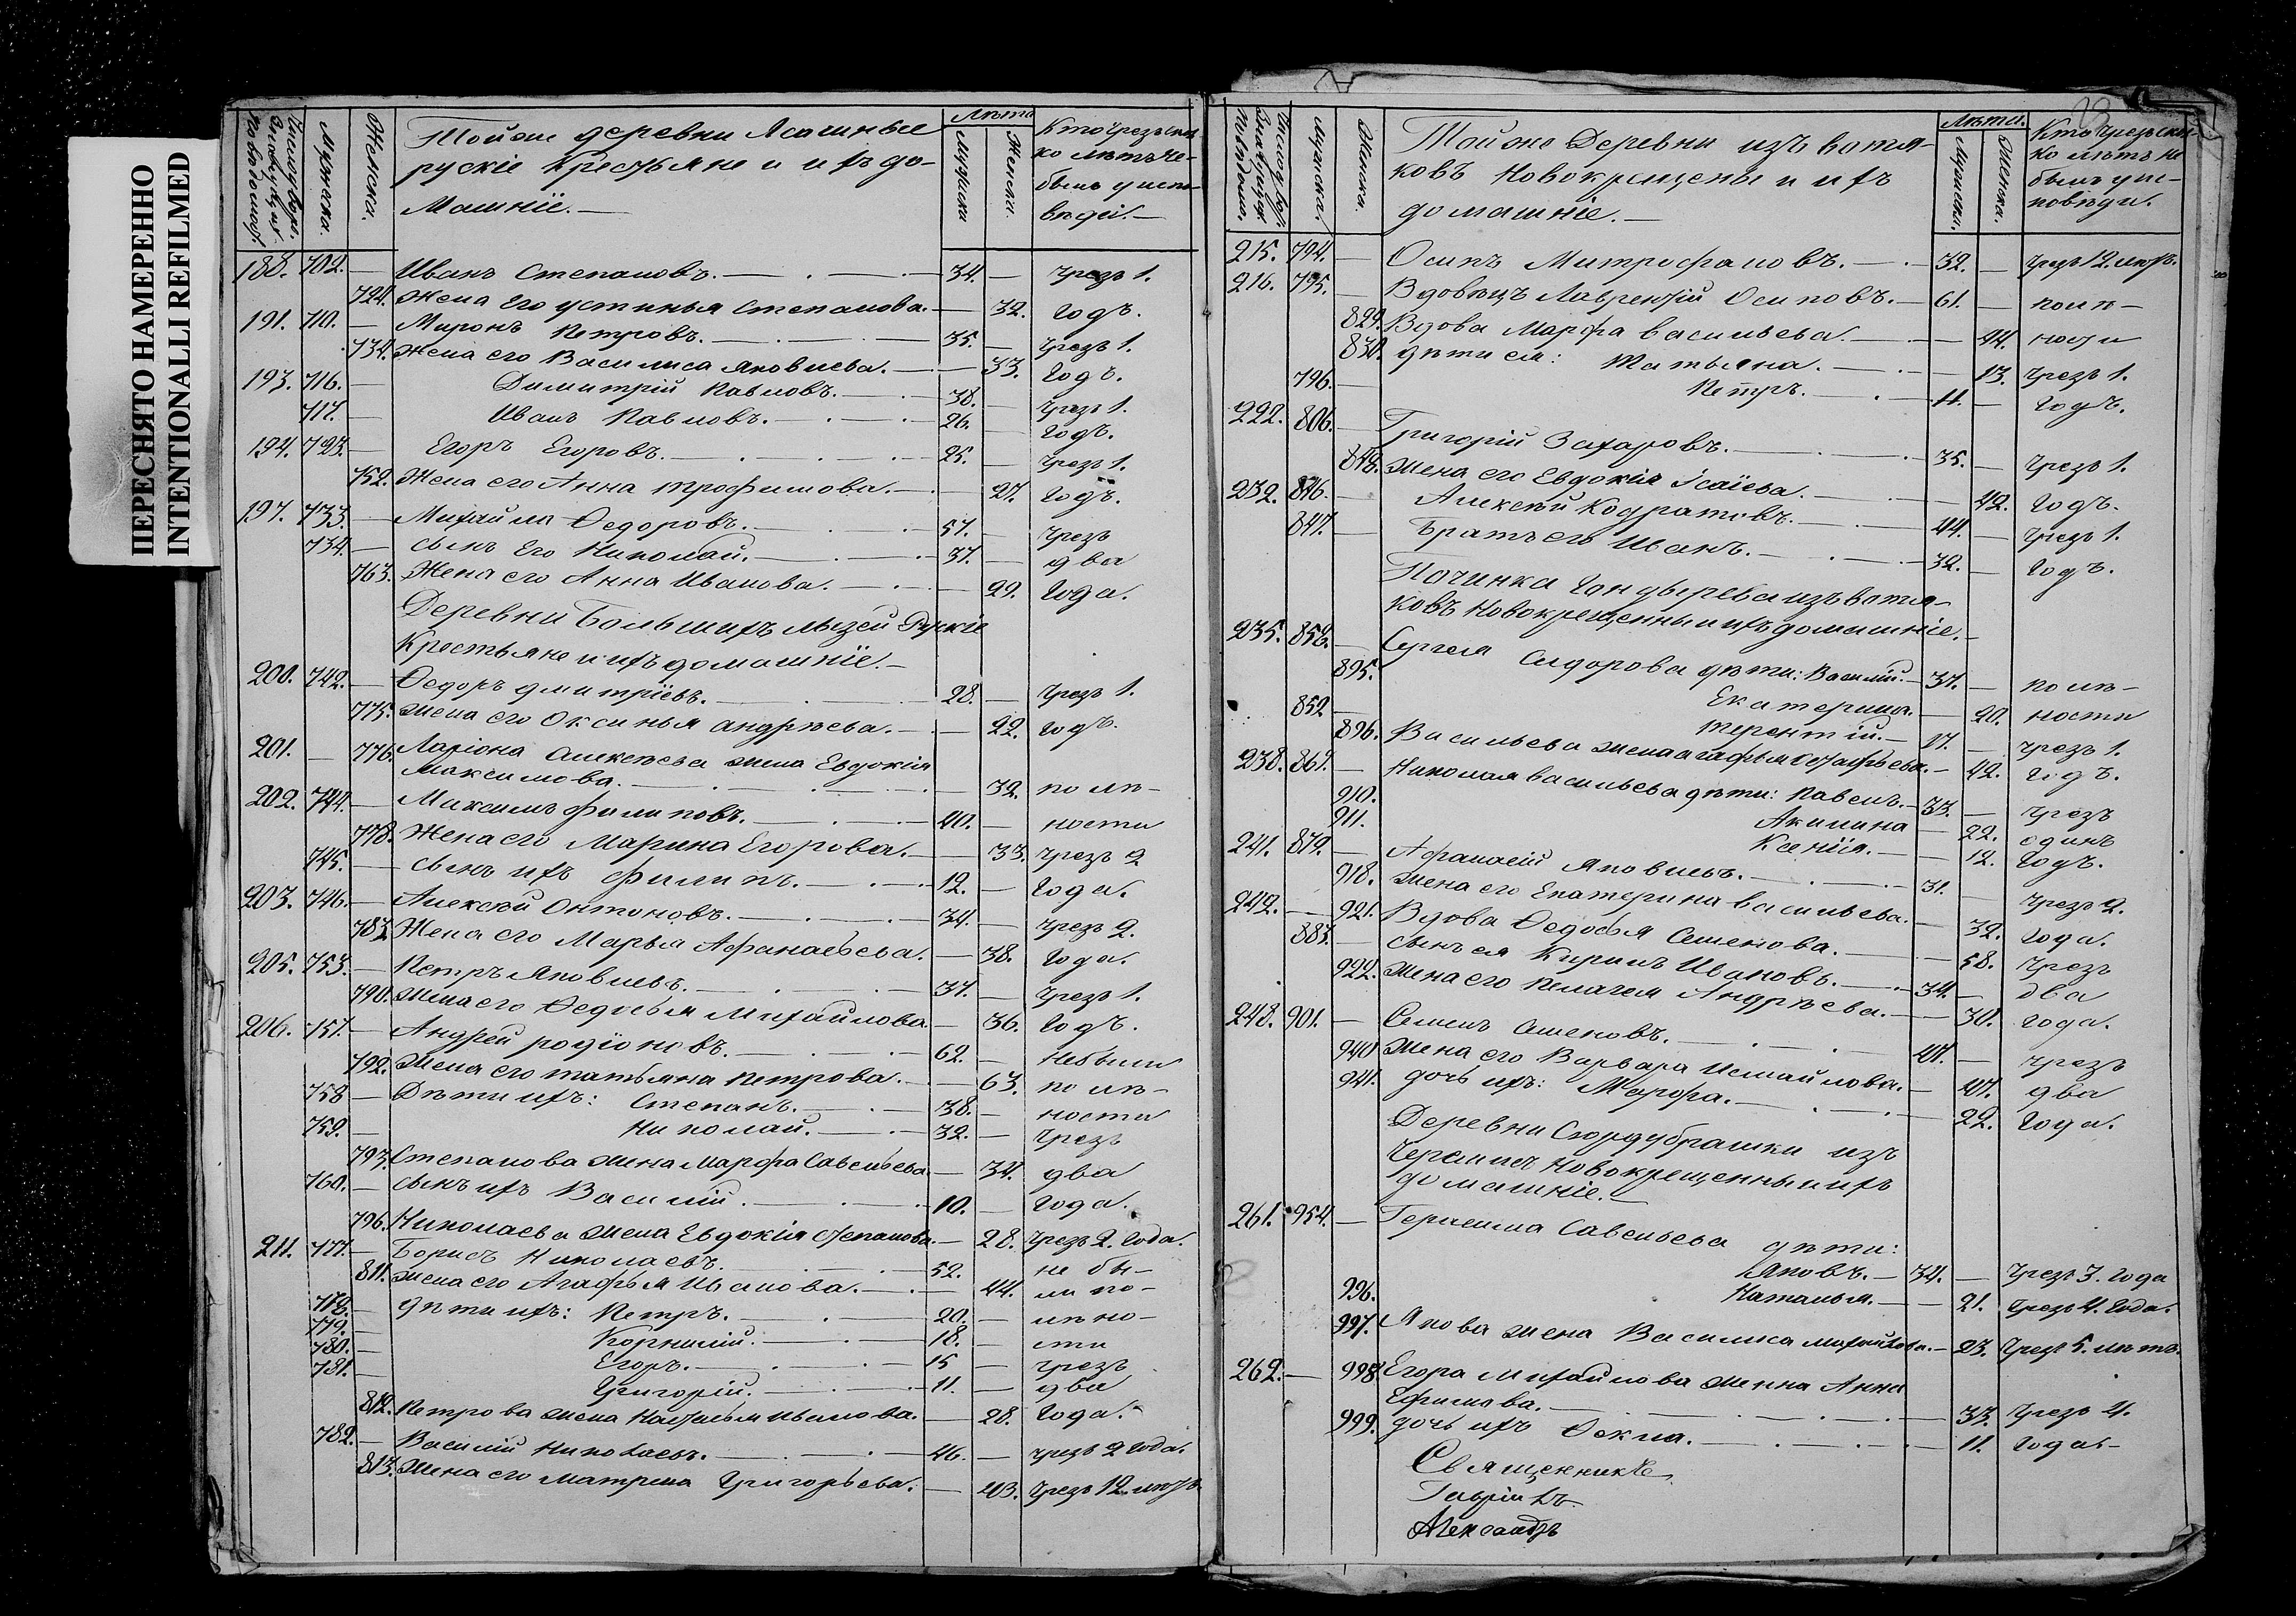 ПЕРЕСНЯТО НАМЕРЕННО
INTENTIONALLI REFILMED
Число двора
Мужеска.
Женска.
Тойже деревни Ясашные
руские Крестьяне и ихъ до-
машніе.—
Лѣта
Мужеска
Женска.
Кто чрезъ сколь-
ко лѣтъ не
былъ у испо-
вѣди.—
188. 702. — Иванъ Степановъ. — 34. — чрезъ 1.
724. Жена его Устинья Степанова. — 32. годъ.
191. 710. — Миронъ Петровъ. — 35. — чрезъ 1.
734. Жена его Василиса Яковлева. — 33. годъ.
193. 716. — Димитрій Павловъ. — 38. — чрезъ 1.
717. — Иванъ Павловъ. — 26. — годъ.
194. 723. — Егоръ Егоровъ. — 25. — чрезъ 1.
752. Жена его Анна Трофимова. — 27. годъ.
197. 733. — Михайла Ѳедоровъ. — 57. — чрезъ
734. — сынъ его Николай. — 37. — два
763. Жена его Анна Иванова. — 29. года.
Деревни Большихъ Лызей Рускіе
Крестьяне и ихъ домашніе.—
200. 742. — Ѳедоръ Дмитріевъ. — 28. — чрезъ 1.
775. Жена его Оксинья Андрѣева. — 22. годъ.
201. — 776. Ларіона Алексѣева жена Евдокія
Максимова. — 32. по лѣ-
202. 744. — Максимъ Филиповъ. — 40. — ности
778. Жена его Марина Егорова. — 33. чрезъ 2
745. — сынъ ихъ Филипъ. — 12. — года.
203. 746. — Алексѣй Онтоновъ. — 34. — чрезъ 2.
783. Жена его Марья Афанасьева. — 38. года.
205. 753. — Петръ Яковлевъ. — 37. — чрезъ 1.
790. Жена его Ѳедосья Михайлова — 36. годъ.
206. 757. — Андрей Родіоновъ. — 62. — небыли
792. Жена его Татьяна Петрова. — 63. по лѣ-
758 — Дѣти ихъ: Степанъ. — 38. — ности
759. — Николай. — 32. — чрезъ
793. Степанова жена Марфа Савельева. — 34. два
760. — сынъ ихъ Василій. — 10. — года.
796. Николаева жена Евдокія Степанова. — 28. чрезъ 2. года.
211. 777. — Борисъ Николаевъ. — 52. не бы-
811. Жена его Агафья Иванова. — 44. ли по-
778. — Дѣти ихъ: Петръ. — 20. — лѣно-
779. — Корнилій. — 18. — сти
780. — Егоръ. — 15 — чрезъ
781. — Григорій. — 11. — два
812. Петрова жена Настасья Иванова. — 28. года.
782. — Василій Николаевъ. — 46. — чрезъ 2 года.
813. Жена его Матрена Григорьева. — 43. чрезъ 12 лѣтъ
Мужеска.
Женска.
Тойже Деревни изъ вотя-
ковъ Новокрещены и ихъ
домашніе.—
Лѣта.
Мужеска.
Женска.
Кто чрезъ сколь-
ко лѣтъ не
былъ у ис-
повѣди.
215. 794. — Осипъ Митрофановъ. — 32. — чрезъ 12. лѣтъ.
216. 795. — Вдовецъ Лаврентій Осиповъ. — 61. — полѣ-
829. Вдова Марфа Васильева. — 44. ности
830. Дѣти ея: Татьяна. — 13. чрезъ 1.
796. Петръ. — 11. — годъ.
222. 806. — Григорій Захаровъ. — 35. — чрезъ 1.
848. Жена его Евдокія Исаіева. — 42. годъ.
232. 846. — Алексѣй Кодратовъ. — 44. — чрезъ 1.
847. — Братъ его Иванъ. — 32. — годъ.
Починка изъ вотя-
ковъ Новокрещенные и ихъ домашніе.—
235. 852. — Сергея Сидорова дѣти: Василій. — 37. — по лѣ-
895. Екатерина. — 20. ности
852 — Терентій. — 17. — чрезъ 1.
896. Васильева жена Агафья Остафьева. — 42. годъ.
238. 867. — Николая Васильева дѣти: Павелъ. — 33. — чрезъ
910. Акилина — 22. одинъ
911. Ксенія. — 12. годъ.
241. 879. — Афанасій Яковлевъ. — 31. — чрезъ 2.
918. Жена его Екатерина Васильева. — 32. года.
242. — 921. Вдова Ѳедосья Семенова. — 58. чрезъ
883. — сынъ ея Кирилъ Ивановъ. — 34. — два
922. Жена его Пелагея Андрѣева. — 30. года.
248. 901. — Семенъ Семеновъ. — 47. — чрезъ
940 Жена его Варвара Исмайлова. — 47. два
941. дочь ихъ: Марфа. — 22. года.
Деревни Сюрдубрашки изъ
Черемисъ Новокрещенны и ихъ
домашніе.—
261. 954. — Герасима Савельева дѣти:
Яковъ. — 34. — чрезъ 3. года
996. Наталья. — 21. чрезъ 4. года.
997. Якова жена Василиса Михайлова. — 23. чрезъ 5. лѣтъ.
262. — 998. Егора Михайлова женна Анна
Ефимова. — 33. чрезъ 4.
999. дочь ихъ Ѳекла. — 11. года—
Священникъ
Гавріилъ
Александръ